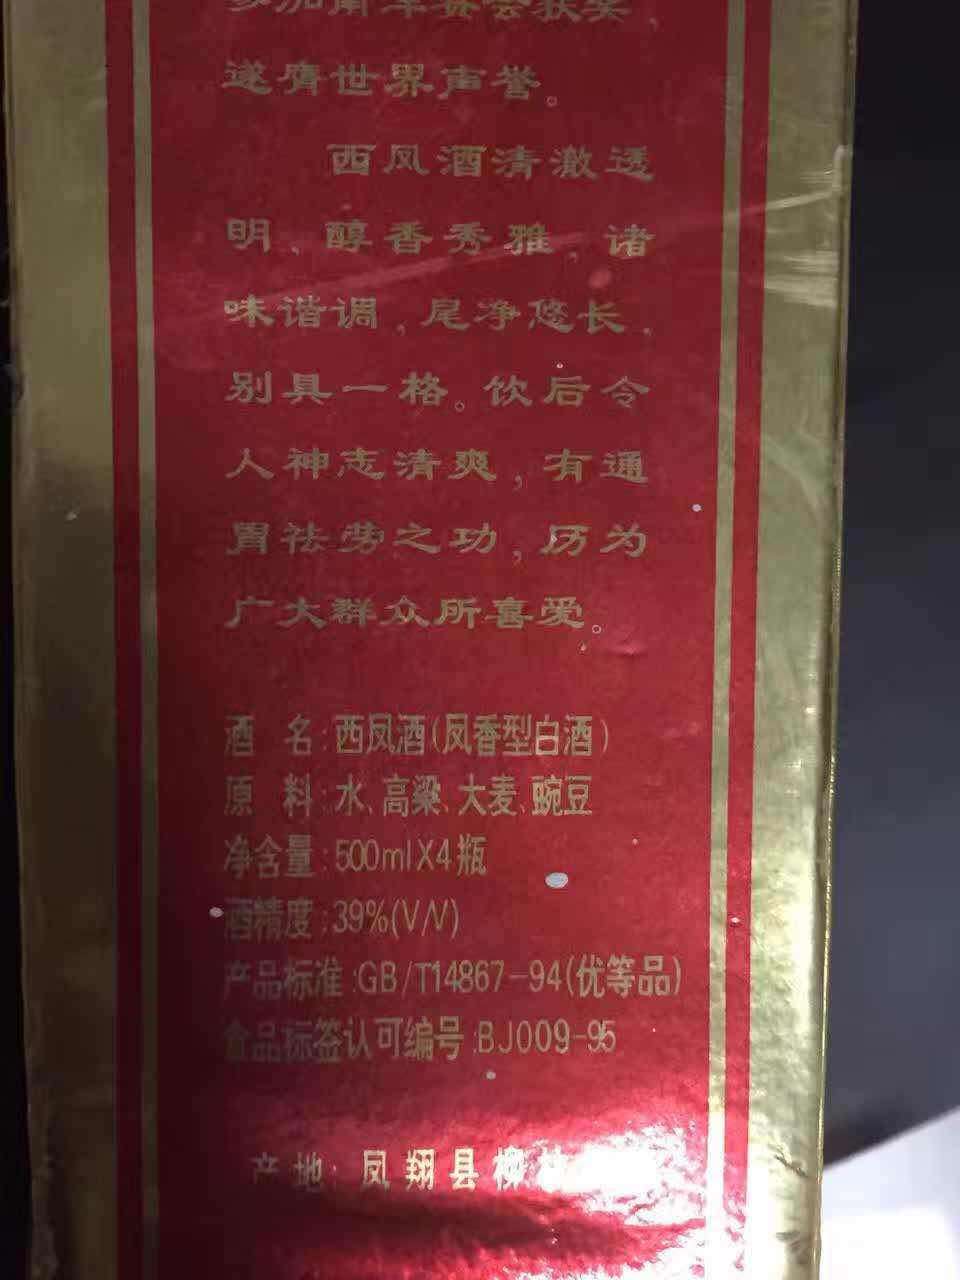 参加南洋赛会获奖，
遂膺世界声誉。
西凤酒清澈透
明、醇香秀雅，诸
味谐调，尾净悠长，
别具一格。饮后令
人神志清爽，有通
胃祛劳之功，历为
广大群众所喜爱。
酒 名:西凤酒(凤香型白酒)
原 料:水、高粱、大麦、豌豆
净含量:500mlX4瓶
酒精度:39%(V/V)
产品标准:GB/T14867-94(优等品)
食品标签认可编号:BJ009-95
产地:凤翔县柳林